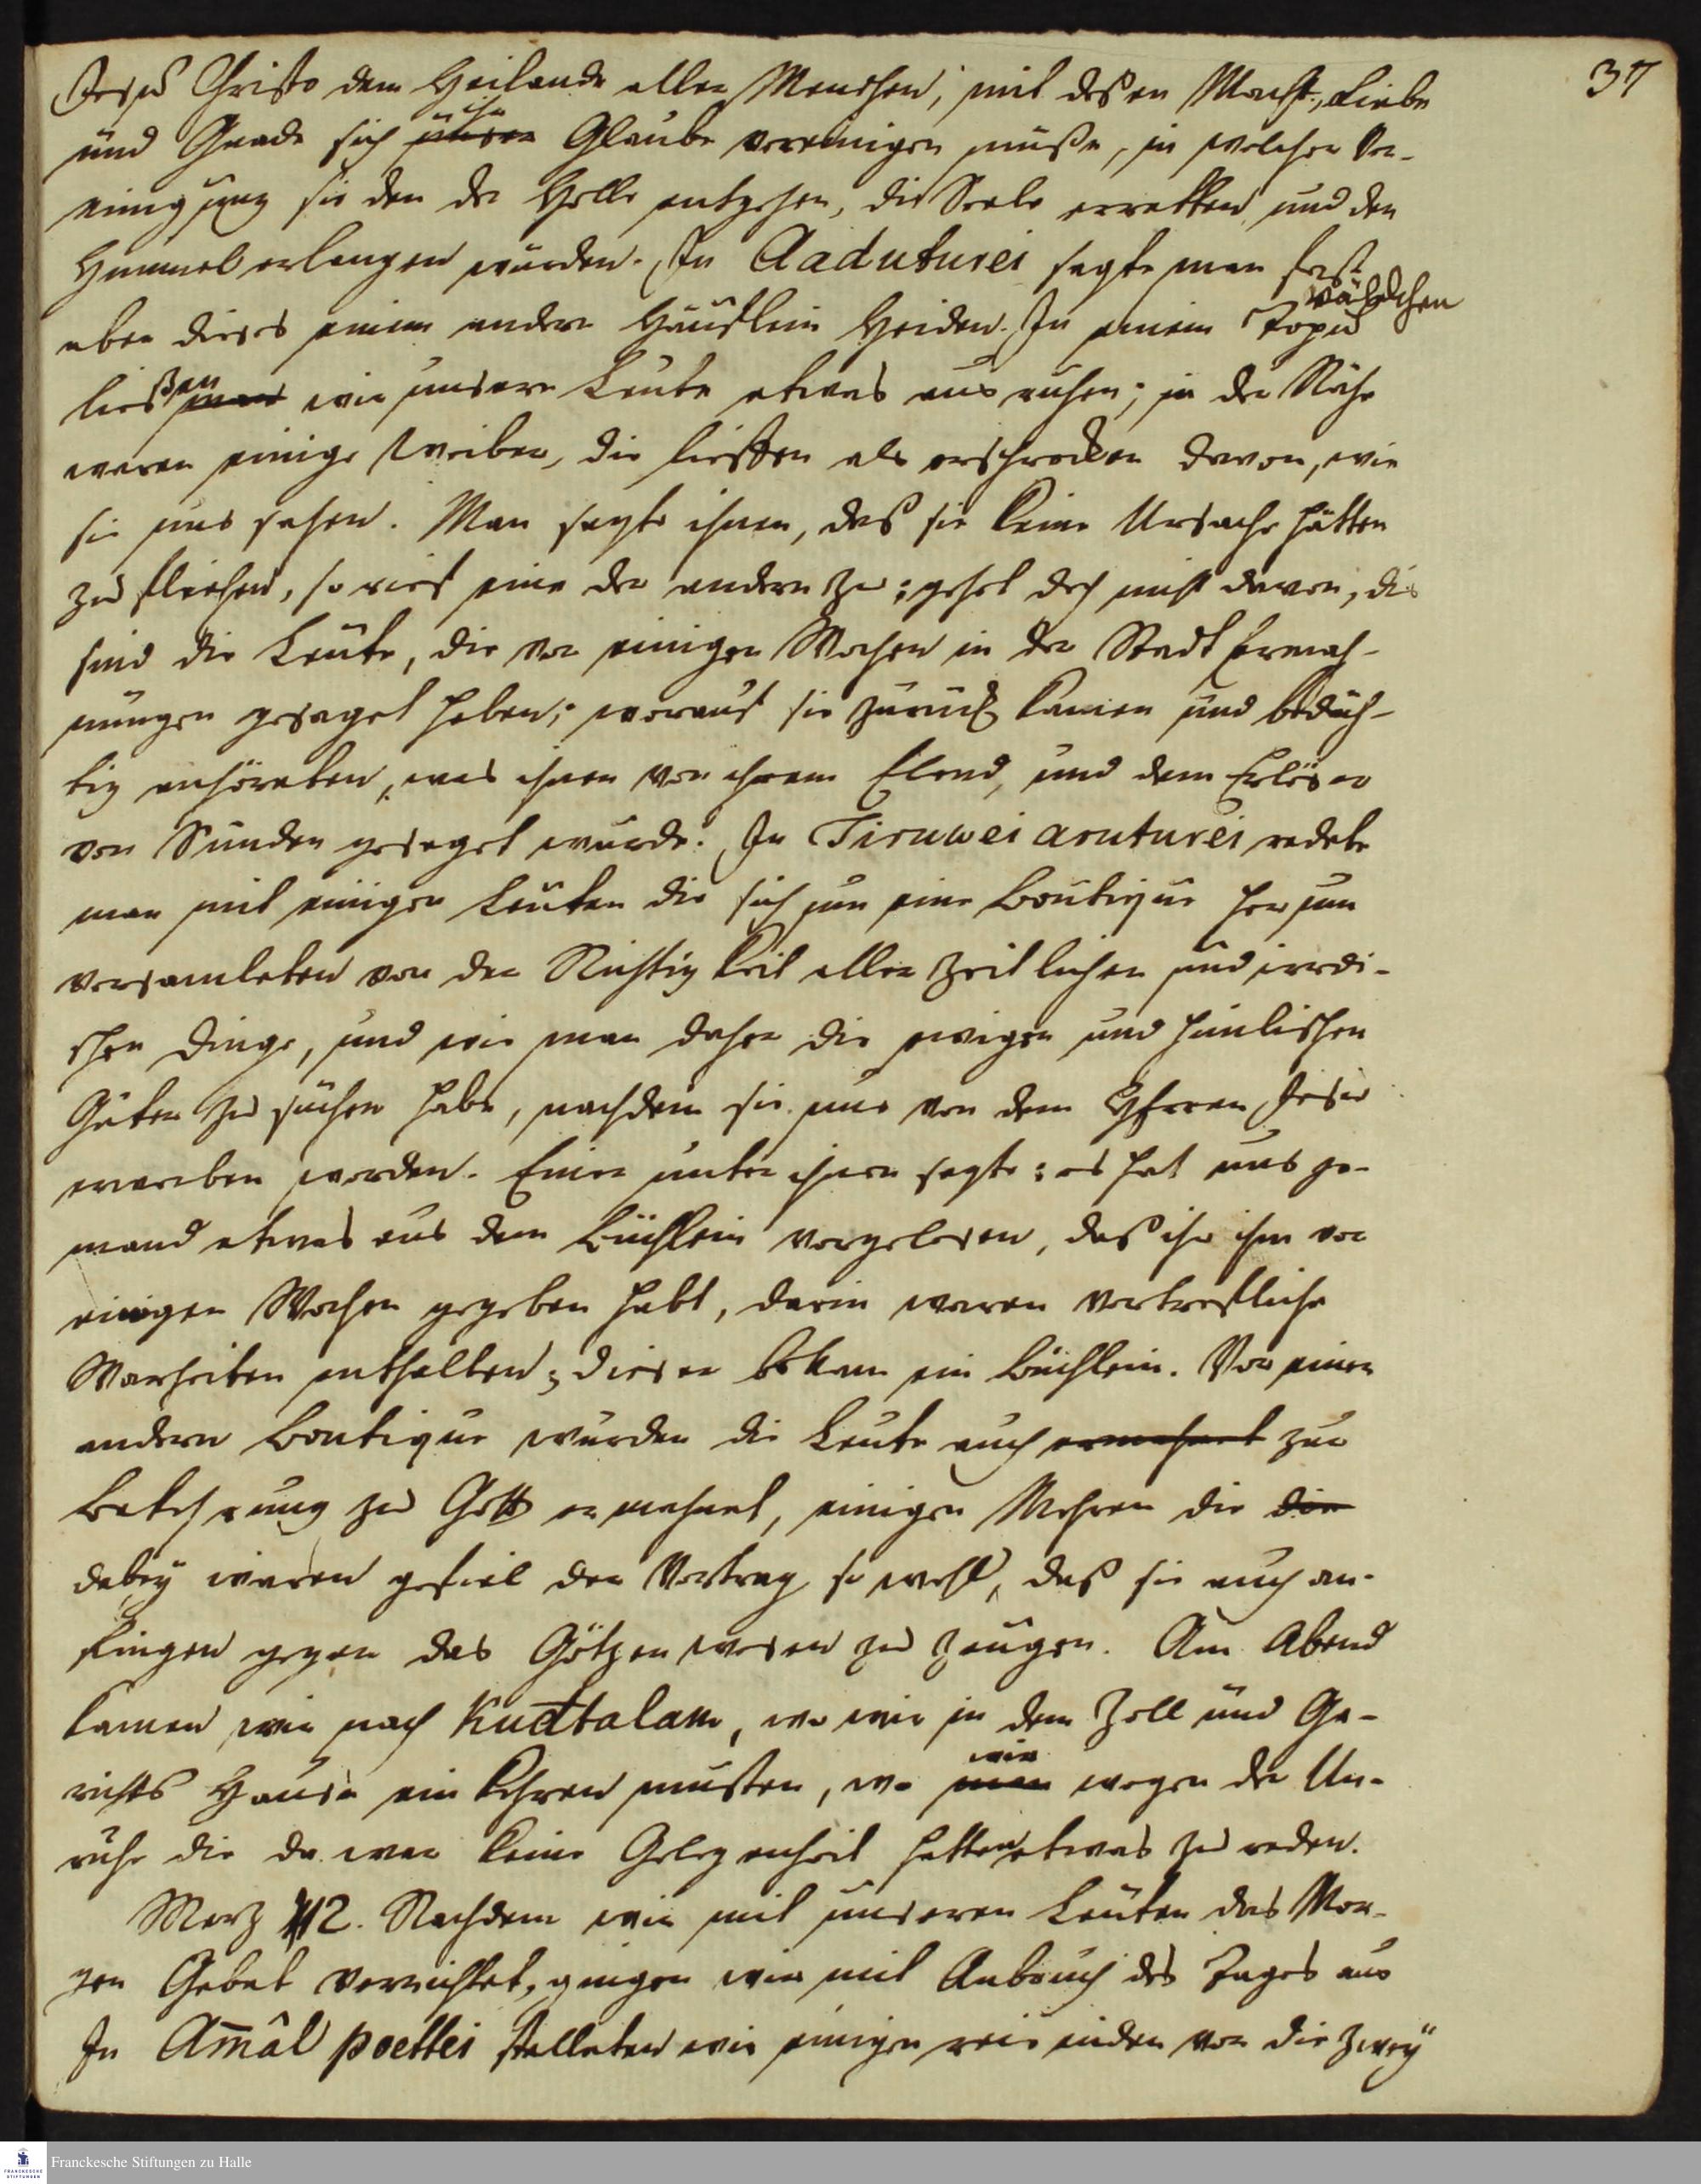 37
Jesu Christo dem Heilande aller Menschen, mit deßen Macht, Liebe
und Gnade sich ihr unser Glaube vereinigen müße, in welcher Ver-
einigung sie den der Hölle entgehen, die Seele erretten und den
Himmel erlangen würden. In Aaduturei sagte man fast
eben dieses einem andern Häuflein Heiden. In einem Topu Wäldchen
ließen man wir unsere Leute etwas aus ruhen; in der Nähe
waren einige Weiber, die lieffen als erschrocken davon, wie
sie uns sahen. Man sagte ihnen, daß sie keine Ursache hätten
zu fliehen, so rief eine der andern zu: gehet doch nicht davon, die
sind die Leute, die vor einigen Wochen in der Stadt Ermah-
nungen gesaget haben; worauf sie zurück kamen und bedäch-
tig anhöreten, was ihnen von ihrem Elend, und dem Erlöser
von Sünden gesaget wurde. In Tiruwei aruturei redete
man mit einigen Leuten die sich um eine Boutique herum
versamleten von der Nichtigkeit aller zeitlichen und irrdi-
schen Dinge, und wie man daher die ewigen und himlischen
Güter zu suchen habe, nachdem sie uns von dem HErren Jesu
erworben worden. Einer unter ihnen sagte: es hat uns je-
mand etwas aus dem Büchlein vorgelesen, das ihr ihm vor
einigen Wochen gegeben habt, darin waren vortrefliche
Warheiten enthalten; dieser bekam ein Büchlein. Vor einer
andern Boutique wurden die Leute auch ermahnet zur
Bekehrung zu Gott ermahnet, einigen Mohren die die
dabey waren gefiel der Vortrag so wohl, daß sie auch an-
fingen gegen das Götzenwesen zu zeugen. Am Abend
kamen wir nach Kudtalam, wo wir in dem Zoll und Ge-
richts Hause ein kehren musten, wo man wir wegen der Un-
ruhe die da war keine Gelegenheit hatten etwas zu reden.
Merz 12. Nachdem wir mit unseren Leuten das Mor-
gen Gebet verrichtet, gingen wir mit Anbruch des Tages aus
In Amâl poettei stelleten wir einigen reisenden vor die zwey
Franckesche Stiftungen zu Halle